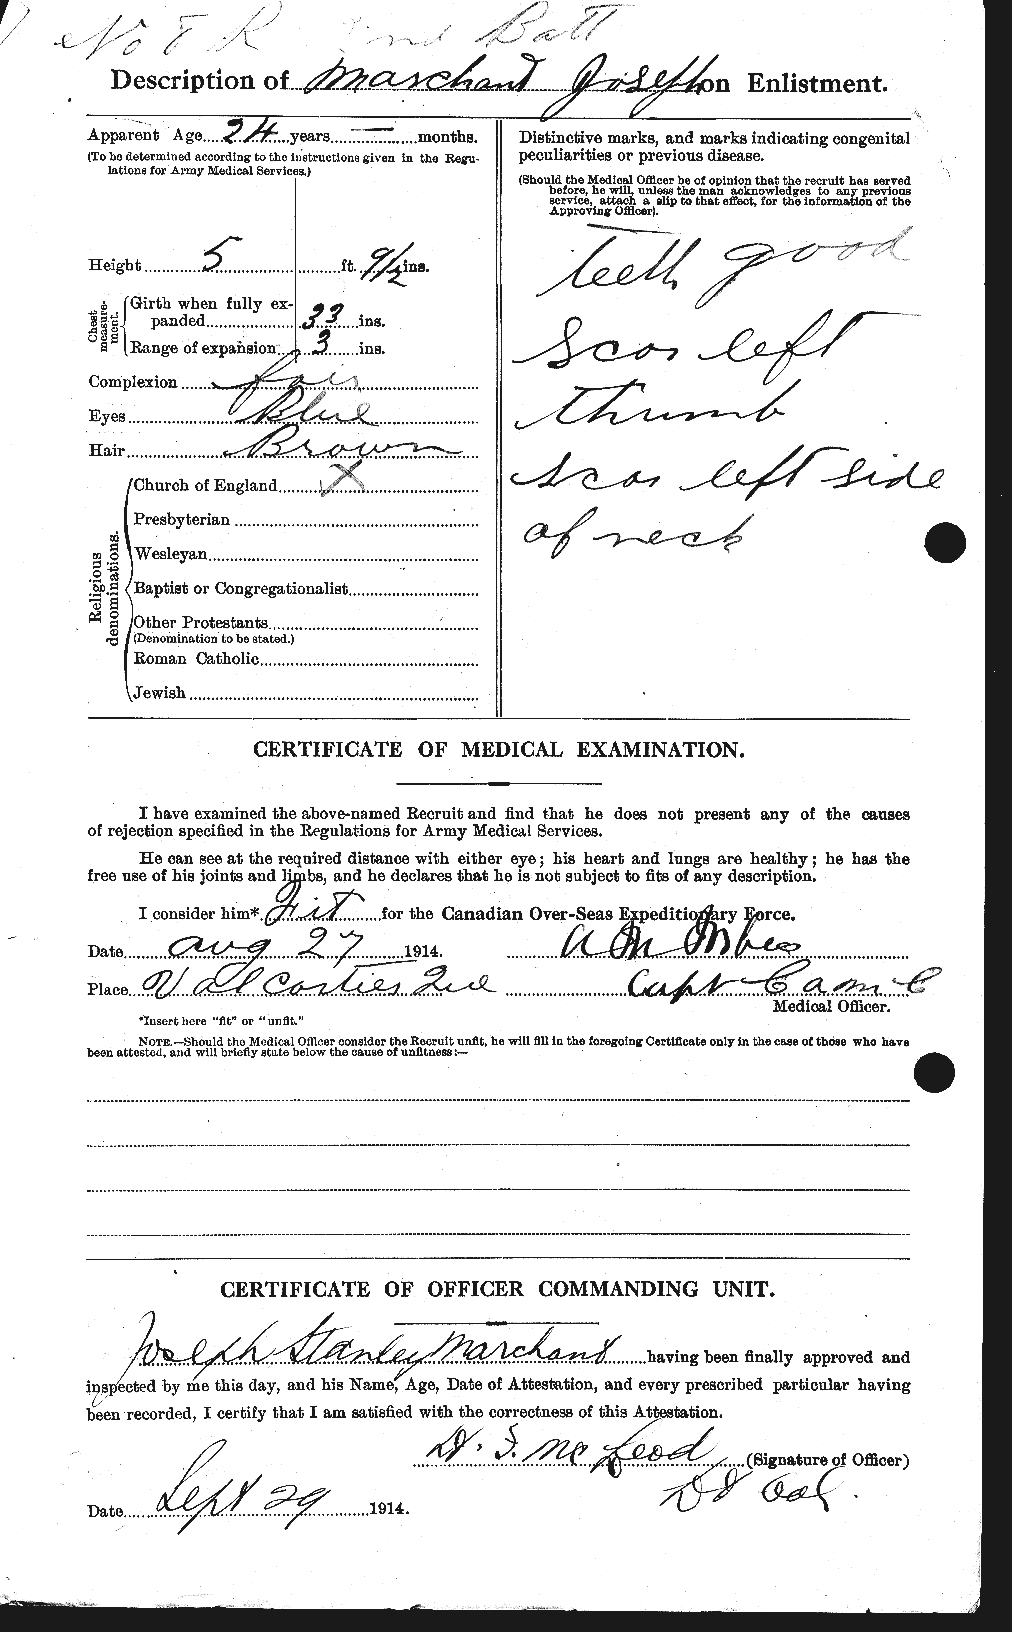 No
Batt
Description of Marchant Joseph on Enlistment.
Apparent Age 24 years — months.
(To be determined according to the instructions given in the Regu-
lations for Army Medical Services.)
Height 5 ft. 9 1/2 ins.
Chest measure-ment.
Girth when fully ex-
panded 33 ins.
Range of expansion 3 ins.
Complexion fair
Eyes Blue
Hair Brown
Religious denominations.
Church of England X
Presbyterian
Wesleyan
Baptist or Congregationalist
Other Protestants
(Denomination to be stated.)
Roman Catholic
Jewish
Distinctive marks, and marks indicating congenital
peculiarities or previous disease.
(Should the Medical Officer be of opinion that the recruit has served
before, he will, unless the man acknowledges to any previous
service, attach a slip to that effect, for the information of the
Approving Officer).
teeth good
Scar left
thumb
scar left side
of neck
CERTIFICATE OF MEDICAL EXAMINATION.
I have examined the above-named Recruit and find that he does not present any of the causes
of rejection specified in the Regulations for Army Medical Services.
He can see at the required distance with either eye; his heart and lungs are healthy; he has the
free use of his joints and limbs, and he declares that he is not subject to fits of any description.
I consider him* Fit for the Canadian Over-Seas Expeditionary Force.
Date Aug 27 1914.
Place Val Cartier Que Capt C am C
Medical Officer.
*Insert here "fit" or "unfit."
NOTE.—Should the Medical Officer consider the Recruit unfit, he will fill in the foregoing Certificate only in the case of those who have
been attested, and will briefly state below the cause of unfitness:—
CERTIFICATE OF OFFICER COMMANDING UNIT.
Joseph Stanley Marchant having been finally approved and
inspected by me this day, and his Name, Age, Date of Attestation, and every prescribed particular having
been recorded, I certify that I am satisfied with the correctness of this Attestation.
McLeod (Signature of Officer)
Date Sept 29 1914.